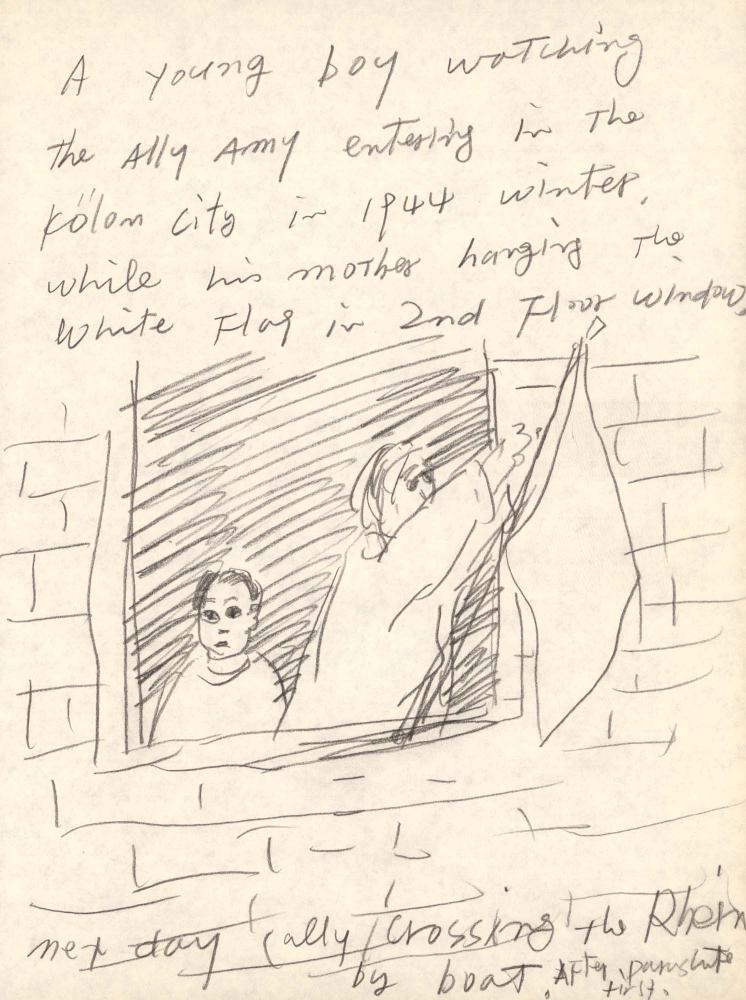 A young boy watching
the Ally Army entering in the
Kölon city in 1944 winter,
while his mother hanging the
White Flag in 2nd Floor window.
nex day (ally / Crossing the Rhein
by boat. After parashute
first.